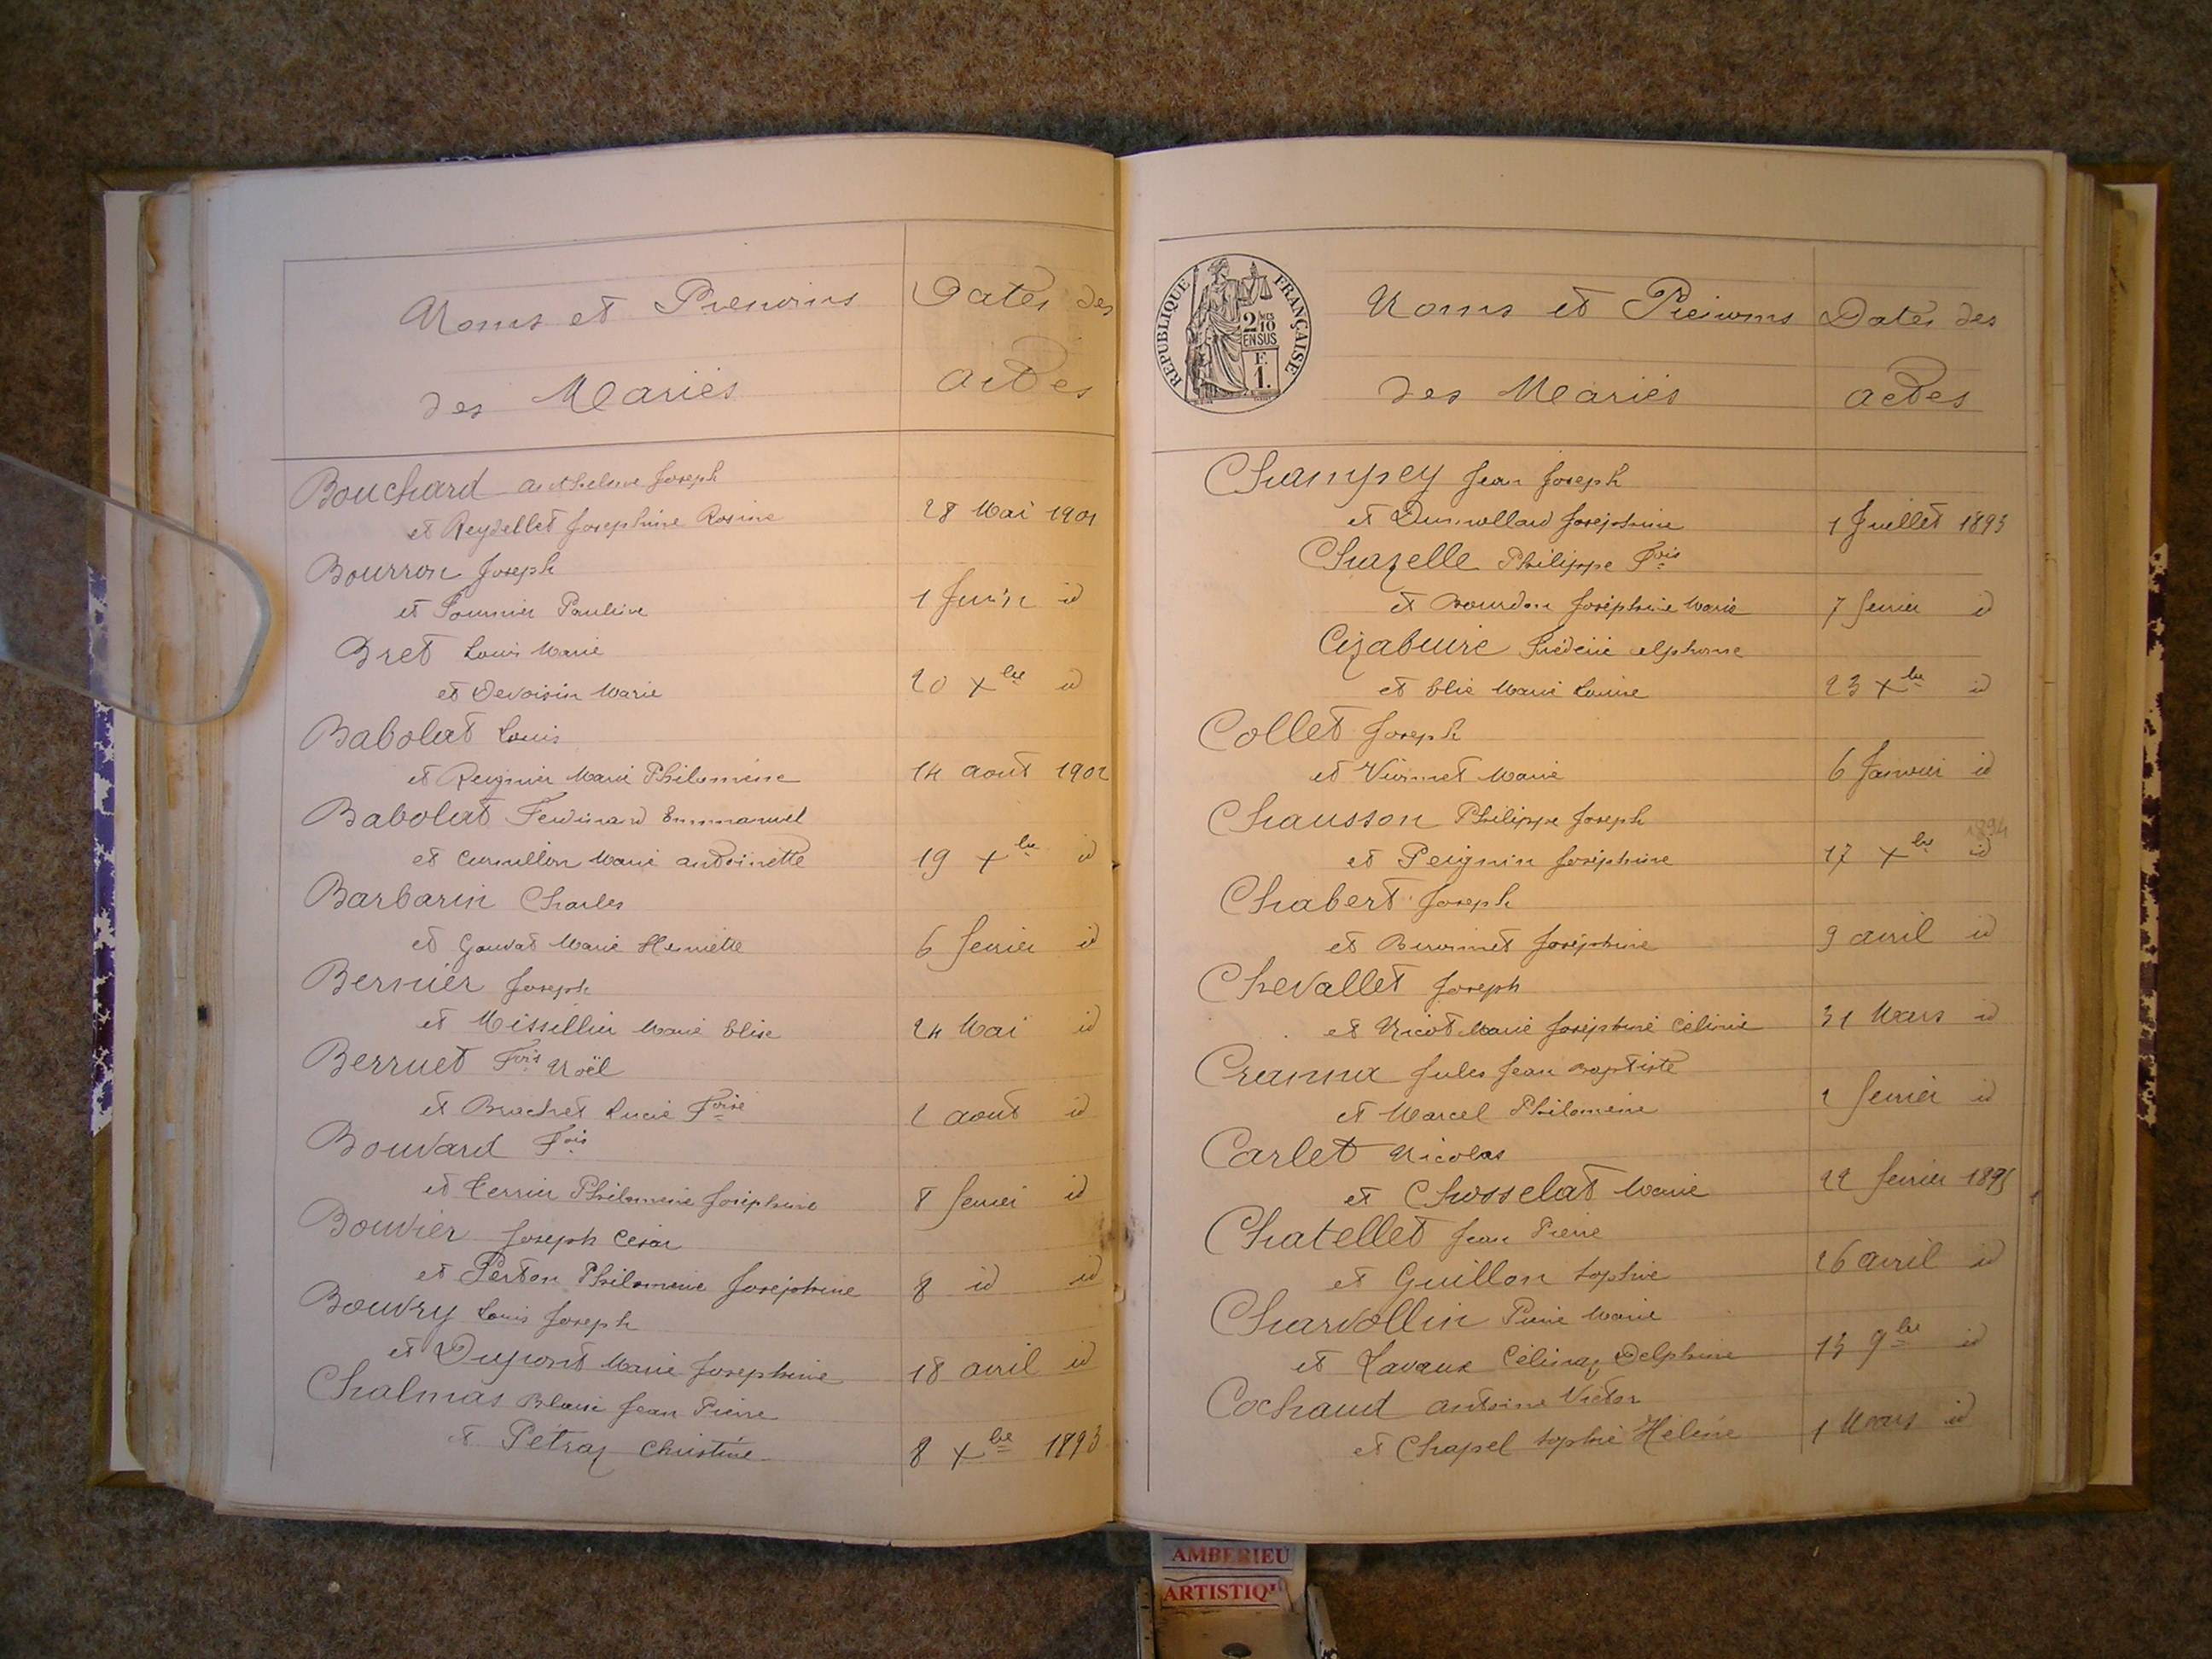 Noms et Prenoms
des Mariés
Dates des
actes
Bouchard Anthelme Joseph
et Reydellet Josephine Rosine 28 Mai 1901
Bourron Joseph
et Fournier Pauline 1 Juin id
Bret Louis Marie
et Devoisin Marie 20 Xbre id
Babolat Louis
et Reignier Marie Philomène 14 aout 1902
Babolat Ferdinand Emmanuel
et Curnillon Marie antoinette 19 Xbre id
Barbarin Charles
et Gouvat Marie Henriette 6 fevrier id
Bernier Joseph
et Missillier Marie Elise 24 Mai id
Berruet Fois Noël
et Brachet Lucie Foise 2 aout id
Bouvard Fois
et Terrier Philomene Joséphine 8 fevrier id
Bouvier Joseph César
et Perton Philomene Joséphine 8 id id
Bouvry Louis Joseph
et Dupont Marie Josephine 18 avril id
Chalmas Blaise Jean Pierre
et Pétraz Christine 8 Xbre 1893
RÉPUBLIQUE FRANÇAISE
2 MES
10
EN SUS
F.
1.
Noms et Prenoms
des Mariés
Dates des
actes
Champey Jean Joseph
et Dumollard Joséphine 1 Juillet 1893
Chazelle Philippe Fois
et Bourdon Joséphine Marie 7 fevrier id
Cizabuire Fréderic Alphonse
et Elie Marie Louise 23 Xbre id
Collet Joseph
et Marie 6 Janvier id
Chausson Philippe Joseph 1894
et Peignin Joséphine 17 Xbre id
Chabert Joseph
et Joséphine 9 avril id
Chevallet Joseph
et Nicot Marie Joséphine Célinie 31 Mars id
Creanna Jules Jean Baptiste
et Marcel Philomene 2 fevrier id
Carlet Nicolas
et Chosselat Marie 22 fevrier 1895
Chatellet Jean Pierre
et Guillon Sophie 26 avril id
Charvollin Pierre Marie
et Lavaux Célinaz Delphine 13 9bre id
Cochaud Antoine Victor
et Chapel Sophie Hélène 1 Mars id
AMBERIEU
ARTISTIQU